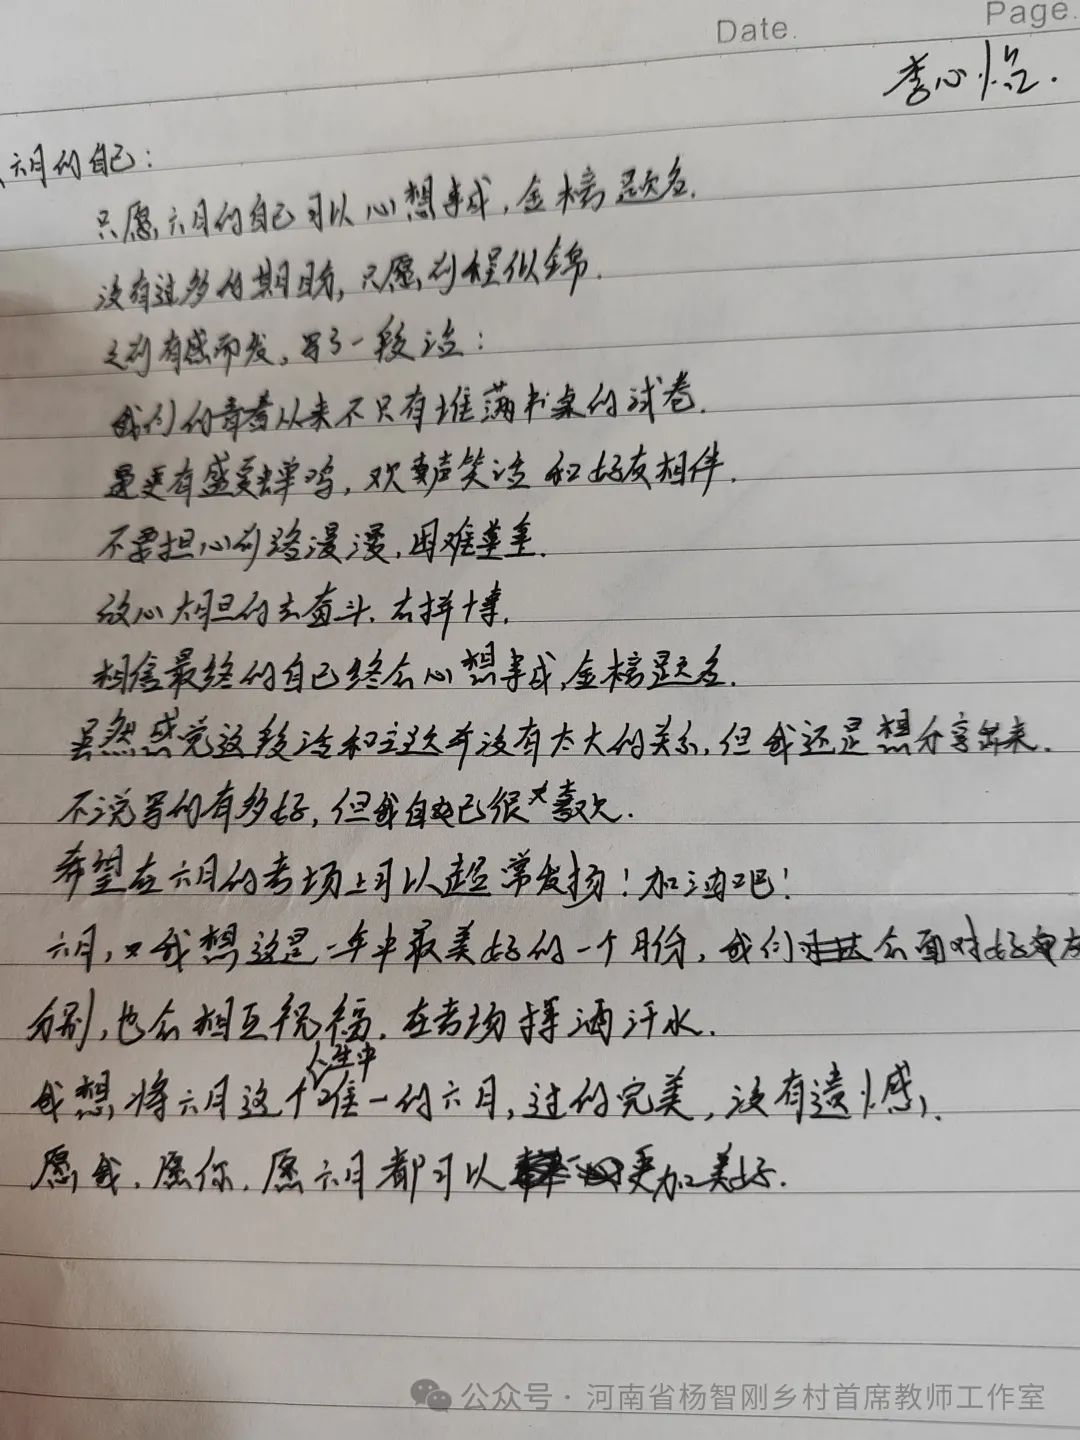 Date.
Page.
李心怡.
六月的自己:
只愿六月的自己可以心想事成,金榜题名.
没有过多的期盼,只愿前程似锦.
之前有感而发,写了一段话:
我们的青春从来不只有堆满书桌的试卷.
更有盛夏蝉鸣,欢声笑语和好友相伴.
不要担心前路漫漫,困难重重.
放心大胆的去奋斗.去拼博.
相信最终的自己终会心想事成,金榜题名.
虽然感觉这段话和主次并没有太大的关系,但我还是想分享出来.
不说写的有多好,但我自己很喜欢.
希望在六月的考场上可以超常发扬!加油吧!
六月,我想这是一年中最美好的一个月份,我们会面对好友
分别,也会相互祝福.在考场挥洒汗水.
我想将六月这个人生中唯一的六月,过的完美,没有遗憾.
愿我.愿你.愿六月都可以更加美好.
公众号·河南省杨智刚乡村首席教师工作室